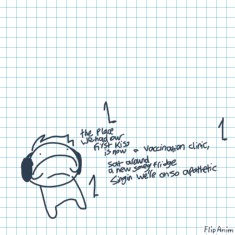 1
the place
we had our
first kiss
is now a vaccination clinic,
sat around
a new fridge
Singin we're oh so apathetic
1
1
FlipAnim